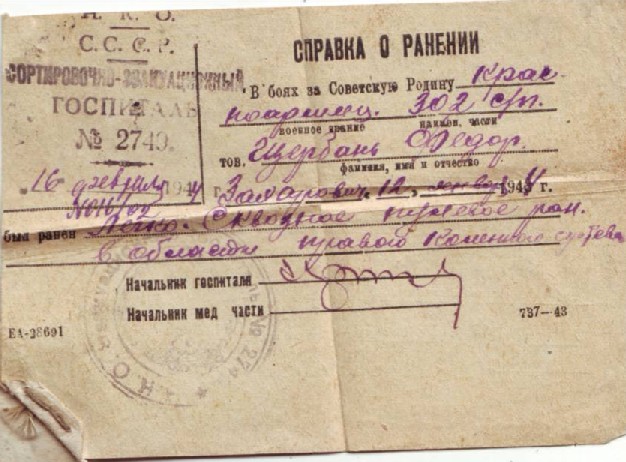 Н. К. О.
С. С. С. Р.
СОРТИРОВОЧНО-ЭВАКУАЦИОННЫЙ
ГОСПИТАЛЬ
№ 2749.
16 февраля 1944 г.
СПРАВКА О РАНЕНИИ
В боях за Советскую Родину крас-
ноармеец. 302 с/п.
военное звание наимен. части
тов. Щербань Федор.
фамилия, имя и отчество
Захарович, 12, января 1944 г.
был ранен Легко. Сквозное пулевое ран.
в области правого коленного сустава
Начальник госпиталя
Начальник мед части
ЕА-38691
737—43